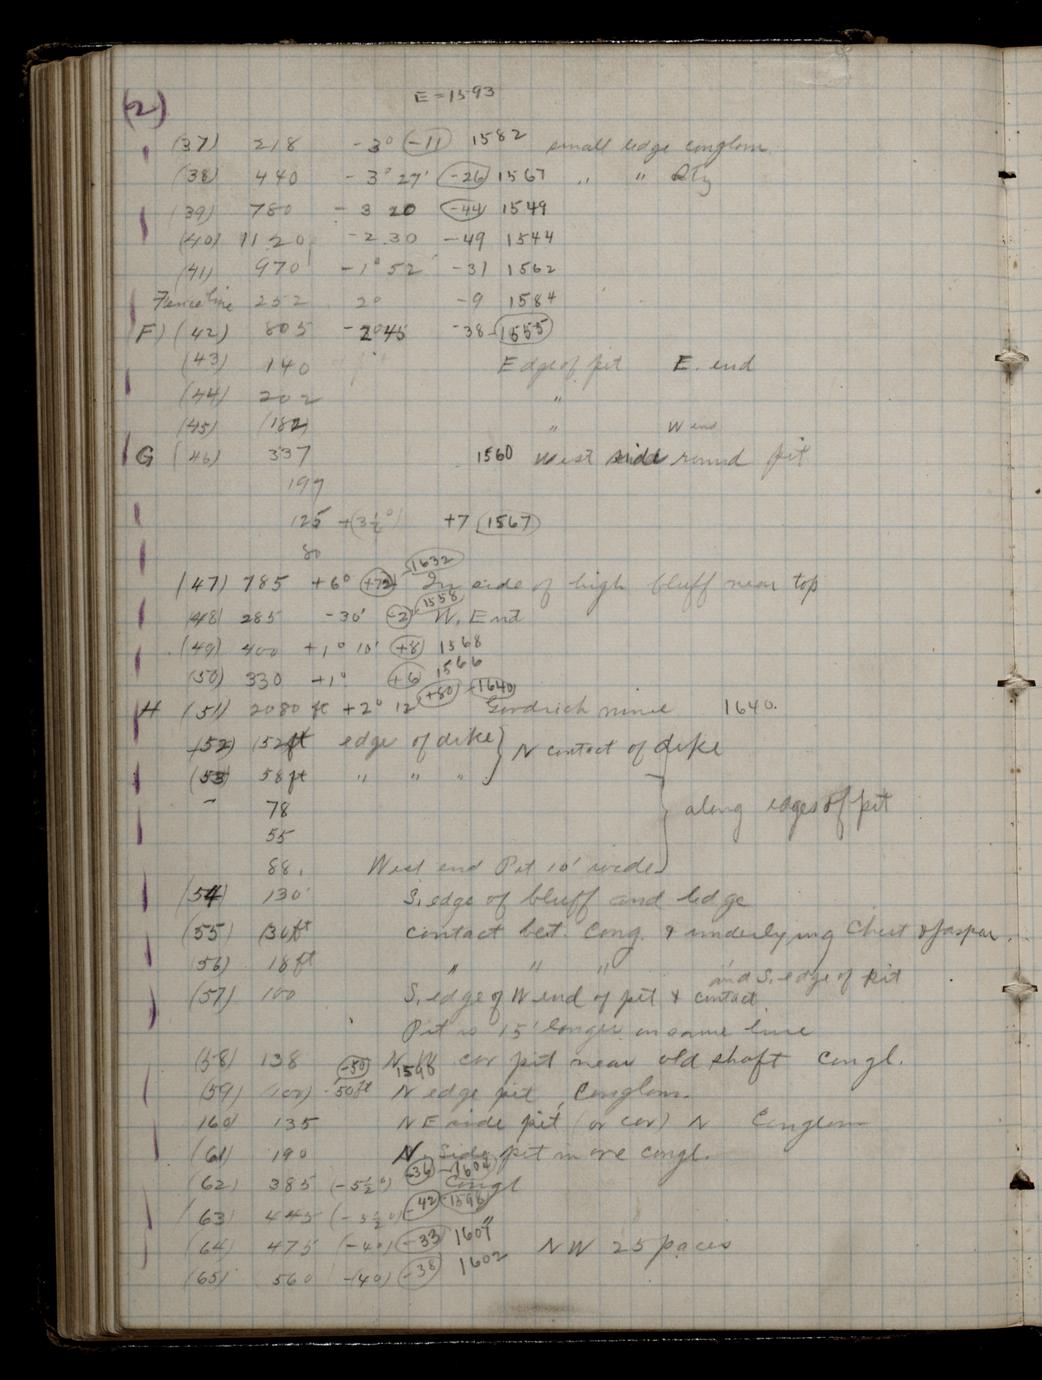 (2) E = 1593
(37) 218 -3° (-11) 1582 small ledge conglom.
(38) 440 -3° 27' (-26) 1567 " " Qtz
(39) 780 -3 20 (-44) 1549
(40) 1120 -2.30 -49 1544
(41) 970 -1° 52' -31 1562
Fence line 252 2° -9 1584
F) (42) 805 -2°45 -38 (1555)
(43) 140 Edge of pit E. end
(44) 202 "
(45) (182) " W end
G (46) 337 1560 West side round pit
197
125 +(3½°) +7 (1567)
80
(47) 785 +6° (+72) (1632) In side of high bluff near top
(48) 285 -30' (-2) (1558) W. End
(49) 400 +1° 10' (+8) 1568
(50) 330 +1° (+6) 1566
H (51) 2080 ft +2° 12' (+80) (1640) Goodrich mine 1640.
(52) 152 ft edge of dike } N contact of dike
(53) 58 ft " " "
- 78 } along edges of pit
55
88. West end Pit 10' wide
(54) 130' S. edge of bluff and ledge
(55) 130 ft contact bet. Cong. & underlying Chert & Jasper.
(56) 18 ft " " " and S. edge of pit
(57) 100 S. edge of W end of pit & contact
Pit is 15' longer on same line
(58) 138 N W cor pit near old shaft Congl.
(59) (-50) -50 ft 1598 N edge pit, Conglom.
(60) 135 N E side pit (or cor) N Conglom
(61) 190 N. Side pit in ore congl.
(62) 385 (-5½°) (-36) (1604) Congl
(63) 445 (-5½°) (-42) (1598) "
(64) 475 (-4°) (-33) 1607 NW 25 paces
(65) 560 -(4°) (-38) 1602